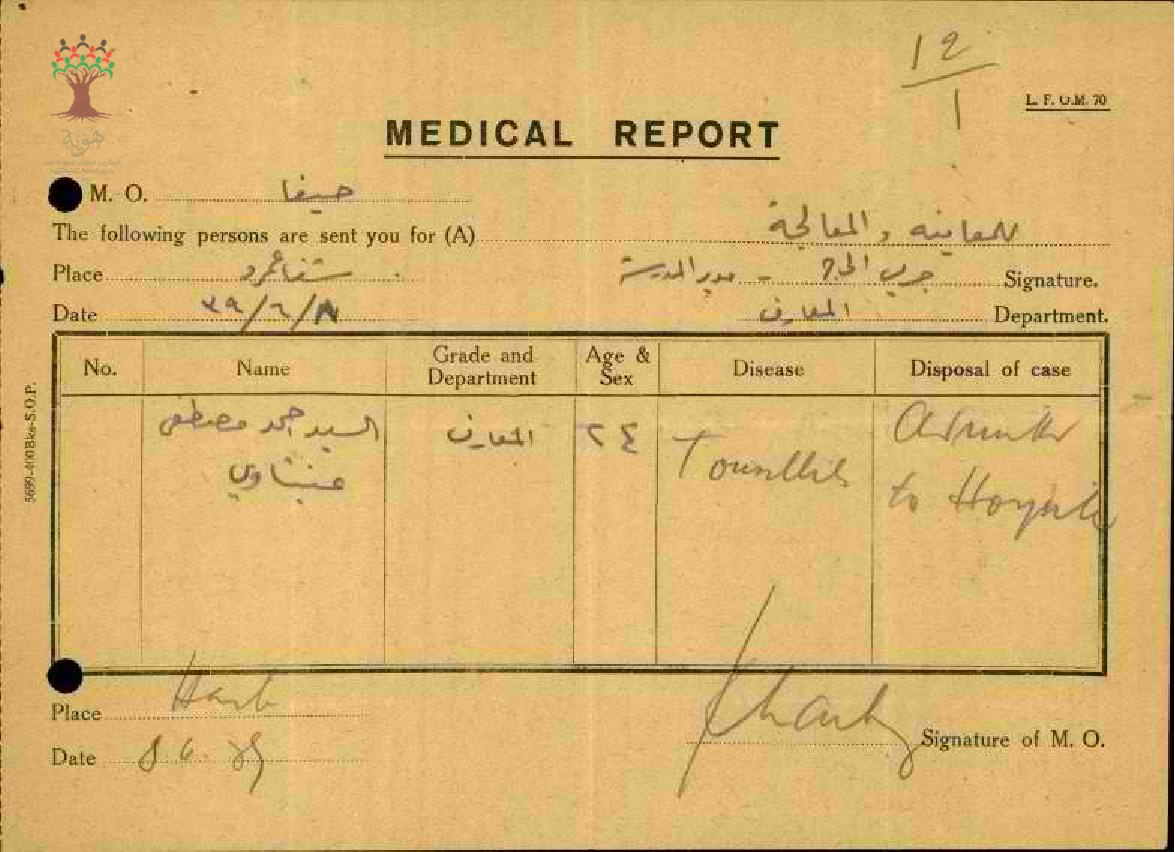 هوية
12/1
L. F. O.M. 70
MEDICAL REPORT
M. O. حيفا
The following persons are sent you for (A) للمعاينه والمعالجة
Place شفاعمرو مدير المدرسة Signature.
Date ٣٩/٦/٨ المعارف Department.
No. Name Grade and Department Age & Sex Disease Disposal of case
السيد احمد مصطفى المعارف ٢٤ Tonsillitis
to Hospital
Place
Date 8.6.39 Signature of M. O.
5699-400 Bks-S.O.P.